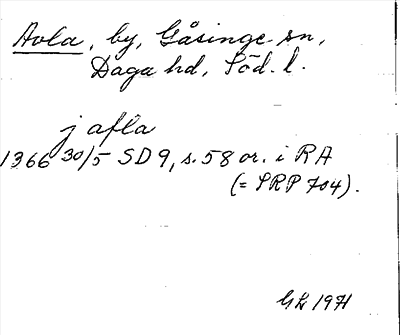 Avla, by, Gåsinge sn,
Daga hd, Söd. l.
j afla
1366 30/5 SD 9, s. 58 or. i RA
(= SRP 704).
GL 1971